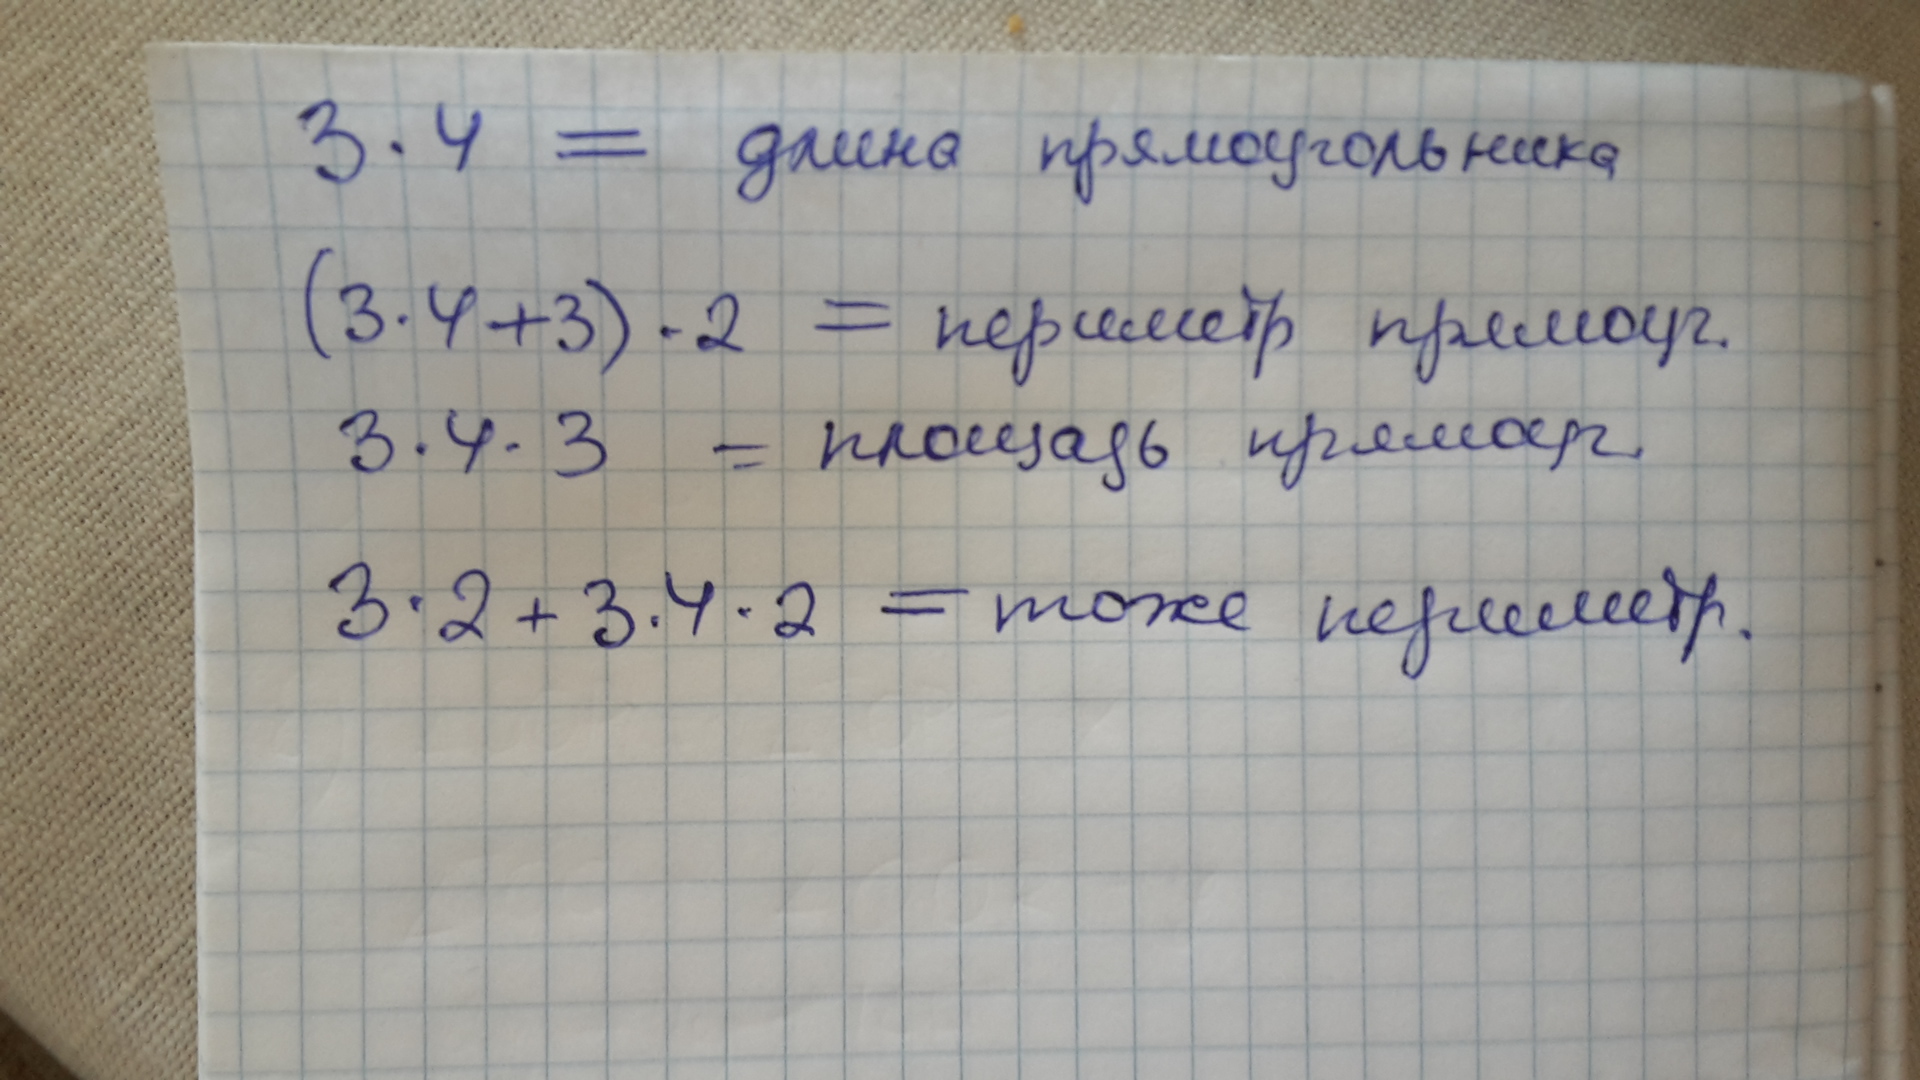 3·4 = длина прямоугольника
(3·4+3)·2 = периметр прямоуг.
3·4·3 = площадь прямоуг.
3·2+3·4·2 = тоже периметр.